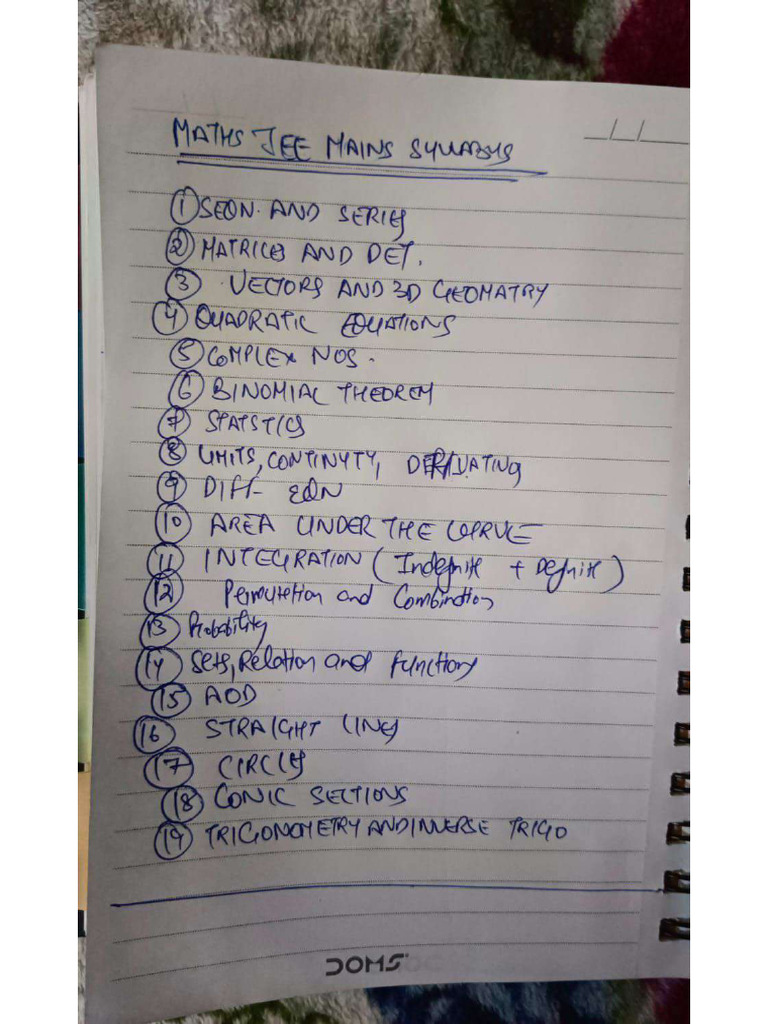 MATHS JEE MAINS SYLLABUS
__/__/__
1 SEQN. AND SERIES
2 MATRICES AND DET.
3 VECTORS AND 3D GEOMATRY
4 QUADRATIC EQUATIONS
5 COMPLEX NOS.
6 BINOMIAL THEOREM
7 STATSTICS
8 LIMITS, CONTINYTY, DERIVATING
9 DIFF- EQN
10 AREA UNDER THE CURVE
11 INTEGRATION (Indefinite + Definite)
12 Permutation and Combination
13 Probability
14 Sets, Relation and functions
15 AOD
16 STRAIGHT LINES
17 CIRCLES
18 CONIC SECTIONS
19 TRIGONOMETRY AND INVERSE TRIGO
DOMS